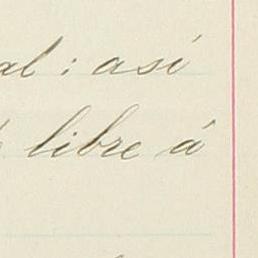 al : así
libre á